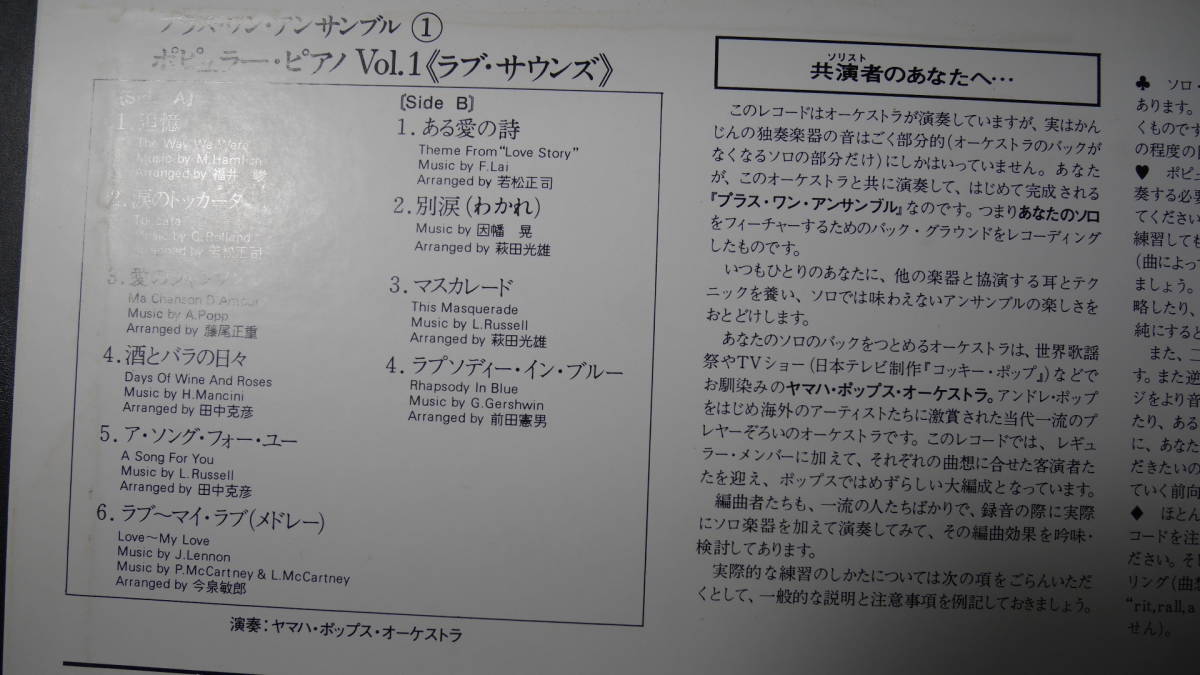 プラス・ワン・アンサンブル ①
ポピュラー・ピアノ Vol.1《ラブ・サウンズ》
〔Side A〕
1. 追憶
The Way We Were
Music by M.Hamlisch
Arranged by 福井 峻
2. 涙のトッカータ
Toccata
Music by G.Rolland
Arranged by 若松正司
3. 愛の
Ma Chanson D'Amour
Music by A.Popp
Arranged by 藤尾正重
4. 酒とバラの日々
Days Of Wine And Roses
Music by H.Mancini
Arranged by 田中克彦
5. ア・ソング・フォー・ユー
A Song For You
Music by L.Russell
Arranged by 田中克彦
6. ラブ〜マイ・ラブ(メドレー)
Love〜My Love
Music by J.Lennon
Music by P.McCartney & L.McCartney
Arranged by 今泉敏郎
〔Side B〕
1. ある愛の詩
Theme From "Love Story"
Music by F.Lai
Arranged by 若松正司
2. 別涙(わかれ)
Music by 因幡 晃
Arranged by 萩田光雄
3. マスカレード
This Masquerade
Music by L.Russell
Arranged by 萩田光雄
4. ラプソディー・イン・ブルー
Rhapsody In Blue
Music by G.Gershwin
Arranged by 前田憲男
演奏:ヤマハ・ポップス・オーケストラ
ソリスト
共演者のあなたへ…
このレコードはオーケストラが演奏していますが、実はかん
じんの独奏楽器の音はごく部分的(オーケストラのバックが
なくなるソロの部分だけ)にしかはいっていません。あなた
が、このオーケストラと共に演奏して、はじめて完成される
『プラス・ワン・アンサンブル』なのです。つまりあなたのソロ
をフィーチャーするためのバック・グラウンドをレコーディング
したものです。
いつもひとりのあなたに、他の楽器と協演する耳とテク
ニックを養い、ソロでは味わえないアンサンブルの楽しさを
おとどけします。
あなたのソロのバックをつとめるオーケストラは、世界歌謡
祭やTVショー(日本テレビ制作『コッキー・ポップ』)などで
お馴染みのヤマハ・ポップス・オーケストラ。アンドレ・ポップ
をはじめ海外のアーティストたちに激賞された当代一流のプ
レヤーぞろいのオーケストラです。このレコードでは、レギュ
ラー・メンバーに加えて、それぞれの曲想に合せた客演者た
たを迎え、ポップスではめずらしい大編成となっています。
編曲者たちも、一流の人たちばかりで、録音の際に実際
にソロ楽器を加えて演奏してみて、その編曲効果を吟味・
検討してあります。
実際的な練習のしかたについては次の項をごらんいただ
くとして、一般的な説明と注意事項を例記しておきましょう。
♣ ソロ・
あります。
くものです
の程度の
♥ ポピュ
奏する必要
てください
練習しても
(曲によって
ましょう。
略したり、
純にすると
また、
す。また逆
ジをより音
たり、ある
に、あなた
だきたいの
ていく前向
◆ ほとん
コードを注
ださい。そ
リング(曲想
"rit,rall,a
せん)。